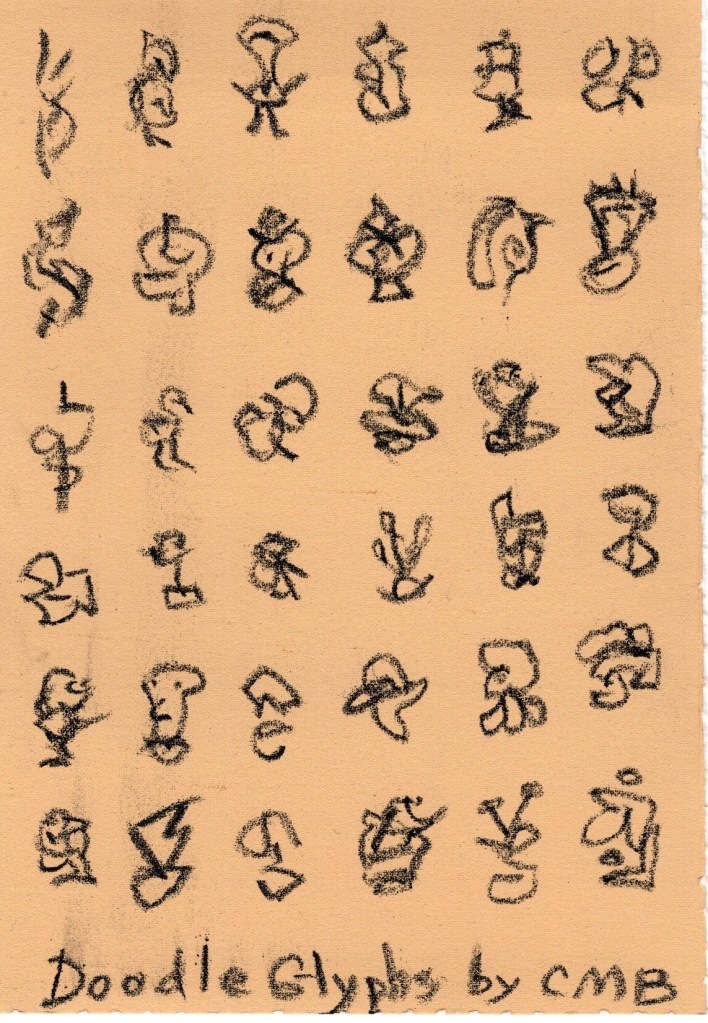 Doodle Glyphs by CMB